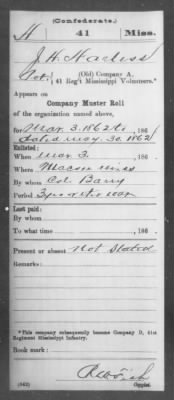 (Confederate.)
H 41 Miss.
J. H. Harless
Pvt., (Old) Company A,
41 Reg't Mississippi Volunteers.*
Appears on
Company Muster Roll
of the organization named above,
for Mar. 3. 1862 to, 186
dated May. 30. 1862
Enlisted:
When Mar. 3, 186 .
Where Macon Miss
By whom Col. Barry
Period 3 yrs or the war
Last paid:
By whom
To what time , 186 .
Present or absent Not Stated
Remarks:
*This company subsequently became Company D, 41st
Regiment Mississippi Infantry.
Book mark:
(642) Copyist.